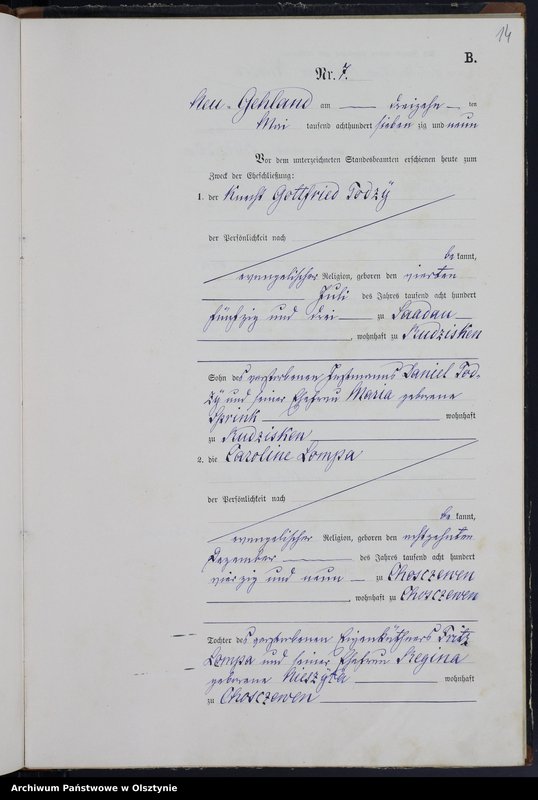 14
B.
Nr. 7.
Neu-Gehland am dreizehn ten
Mai tausend achthundert sieben zig und neun
Vor dem unterzeichneten Standesbeamten erschienen heute zum
Zweck der Eheschließung:
1. der Knecht Gottfried Todzÿ
der Persönlichkeit nach
be kannt,
evangelischer Religion, geboren den vierten
Juli des Jahres tausend acht hundert
fünfzig und drei zu Saadau
, wohnhaft zu Rudzisken
Sohn des verstorbenen Instmanns Daniel Tod-
zÿ und seiner Ehefrau Maria geborene
Sprink wohnhaft
zu Rudzisken
2. die Caroline Lompa
der Persönlichkeit nach
be kannt,
evangelischer Religion, geboren den achtzehnten
Dezember des Jahres tausend acht hundert
vierzig und neun zu Choszewen
, wohnhaft zu Choszewen
Tochter des verstorbenen Eigenkäthners Fritz
Lompa und seiner Ehefrau Regina
geborene wohnhaft
zu Choszewen
Archiwum Państwowe w Olsztynie